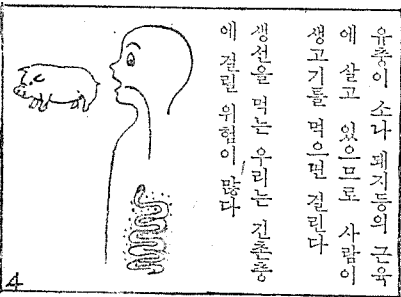 유충이 소나 돼지등의 근육
에 살고 있으므로 사람이
생고기를 먹으면 걸린다
생선을 먹는 우리는 긴촌충
에 걸린 위험이 많다
4